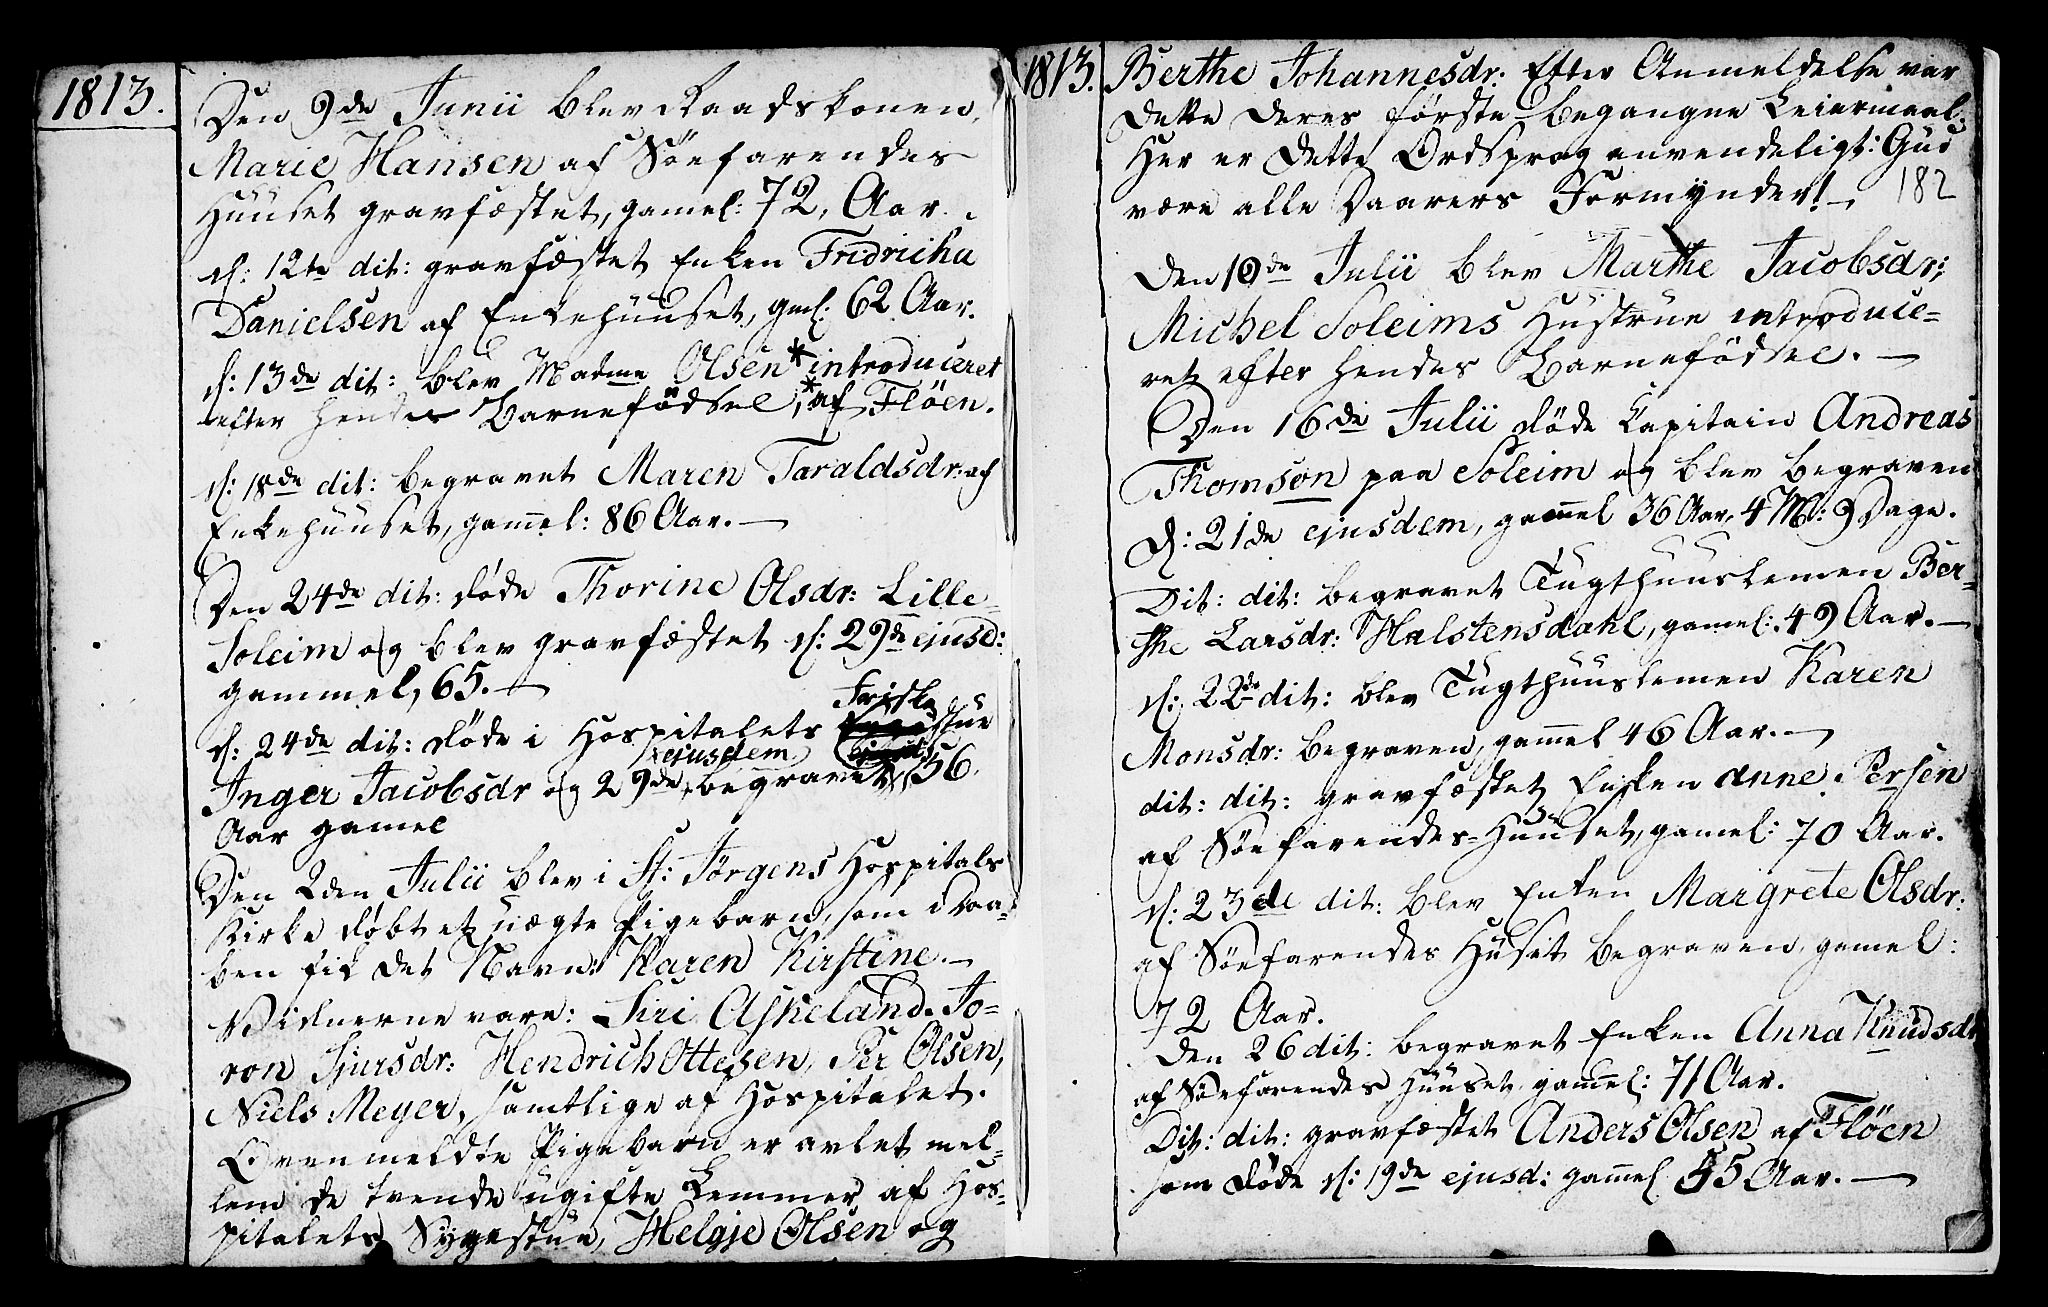 1813.
Den 9de Junii blev Raadskonen,
Marie Hansen af Söefarendes
Huuset gravfæstet, gamel: 72, Aar.
d: 12te dit: gravfæstet Enken Fridricha
Danielsen af Enkehuuset, gml: 62 Aar.
d: 13de dit: blev Madme Olsen * introduceret
efter hendes Barnefödsel, * af Flöen.
d: 18de dit: begravet Maren Taraldsdr: af
Enkehuuset, gam̄el: 86 Aar. —
Den 24de dit: døde Thorine Olsdr: Lille-
Soleim og blev gravfæstet d: 29de ejusd:
gammel, 65. —
Friske
d: 24de dit: døde i Hospitalets stue
ejusdem
Inger Jacobsdr og 29de begravet, 56.
Aar gamel
Den 2den Julii blev i St: Jörgens Hospitals
Kirke døbt et uægte Pigebarn, som i Daa-
ben fik det Navn: Karen Kirstine. —
Vidnerne vare: Siri Askeland. To-
ron Sjursdr: Hendrich Ottesen, Per Olsen,
Niels Meyer, samtlige af Hospitalet.
Ovenmeldte Pigebarn er avlet mel-
lem de tvende ugifte Lemmer af Hos-
pitalets Sygestue, Helgje Olsen og
1813. Berthe Johannesdr: Efter Anmeldelse var
dette deres første begangne Leiermaal.
Her er dette Ordsprog anvendeligt: Gud
være alle Daarers Formynder! —
182
Den 10de Julii blev Marthe Jacobsdr:
Michel Soleims Hustrue introduce-
ret efter hendes Barnefödsel. —
Den 16de Julii döde Capitain Andreas
Thomson paa Soleim og blev begraven
d: 21de ejusdem, gam̄el 36 Aar, 4 M: 9 Dage.
Dit: dit: begravet Tugthuuslemen Ber-
the Larsdr: Halstensdahl, gamel: 49 Aar. —
d: 22de dit: blev Tugthuuslemen Karen
Monsdr: begraven, gam̄el 46 Aar. —
dit: dit: gravfæstet Enken Anne Persen
af Söefarendes-Huuset, gamel: 70 Aar.
d: 23de dit: blev Enken Margrete Olsdr:
af Söefarendes Huset begraven, gamel:
72 Aar.
Den 26 dit: begravet Enken Anna Knudsdr
af Söefarendes Huuset gam̄el: 71 Aar.
Dit: dit: gravfæstet Anders Olsen af Flöen
som døde d: 19de ejusd: gam̄el 55 Aar. —